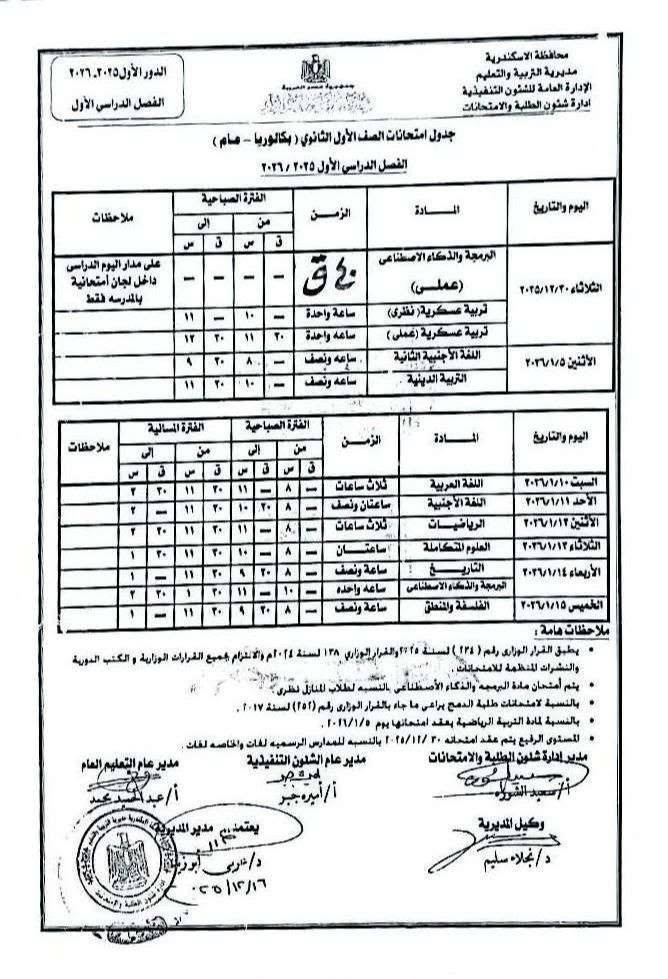 محافظة الاسكندرية
مديرية التربية والتعليم
الإدارة العامة للشئون التنفيذية
إدارة شئون الطلبة والامتحانات
جمهورية مصر العربية
الدور الأول ٢٠٢٥-٢٠٢٦
الفصل الدراسي الأول
جدول امتحانات الصف الأول الثانوي ( بكالوريا - عام )
الفصل الدراسي الأول ٢٠٢٥ / ٢٠٢٦
اليوم والتاريخ المــادة الزمـن الفترة الصباحية ملاحظات
من إلى
ق س ق س
الثلاثاء ٢٠٢٥/١٢/٣٠ البرمجة والذكاء الاصطناعى (عملـى) ٤٠ ق — — — — على مدار اليوم الدراسى داخل لجان أمتحانية بالمدرسه فقط
تربية عسكرية (نظرى) ساعة واحدة — ١٠ — ١١
تربية عسكرية (عملى) ساعة واحدة ٣٠ ١١ ٣٠ ١٢
الأثنين ٢٠٢٦/١/٥ اللغة الأجنبية الثانية ساعه ونصف — ٨ ٣٠ ٩
التربية الدينية ساعه ونصف — ١٠ ٣٠ ١١
اليوم والتاريخ المــادة الزمـن الفترة الصباحية الفترة المسائية ملاحظات
من إلى من إلى
ق س ق س ق س ق س
السبت ٢٠٢٦/١/١٠ اللغة العربية ثلاث ساعات — ٨ — ١١ ٣٠ ١١ ٣٠ ٢
الأحد ٢٠٢٦/١/١١ اللغة الأجنبية ساعتان ونصف — ٨ ٣٠ ١٠ ٣٠ ١١ — ٢
الأثنين ٢٠٢٦/١/١٢ الرياضيات ثلاث ساعات — ٨ — ١١ ٣٠ ١١ ٣٠ ٢
الثلاثاء ٢٠٢٦/١/١٣ العلوم المتكاملة ساعتــان — ٨ — ١٠ ٣٠ ١١ ٣٠ ١
الأربعاء ٢٠٢٦/١/١٤ التاريخ ساعة ونصف — ٨ ٣٠ ٩ ٣٠ ١١ — ١
البرمجة والذكاء الاصطناعى ساعه واحده — ١٠ — ١١ ٣٠ ١ ٣٠ ٢
الخميس ٢٠٢٦/١/١٥ الفلسفة والمنطق ساعة ونصف — ٨ ٣٠ ٩ ٣٠ ١١ — ١
ملاحظات هامة :
• يطبق القرار الوزارى رقم ( ٢٣٤ ) لسنة ٢٠٢٥ والقرار الوزاري ١٣٨ لسنة ٢٠٢٤م والالتزام بجميع القرارات الوزارية و الكتب الدورية
والنشرات المنظمة للامتحانات .
• يتم أمتحان مادة البرمجه والذكاء الأصطناعى بالنسبه لطلاب المنازل نظرى .
• بالنسبة لامتحانات طلبة الدمج يراعى ما جاء بالقرار الوزارى رقم (٢٥٢) لسنة ٢٠١٧ .
• بالنسبة لمادة التربية الرياضية يعقد امتحانها يوم ٢٠٢٦/١/٥ .
• المستوى الرفيع يتم عقد امتحانه ٣٠ /٢٠٢٥/١٢ بالنسبه للمدارس الرسميه لغات والخاصه لغات .
مدير إدارة شئون الطلبة والامتحانات
مدير عام الشئون التنفيذية
أ/ أميرة جبر
مدير عام التعليم العام
وكيل المديرية
د/ نجلاء سليم
يعتمد،،، مدير المديرية
٢٠٢٥/١٢/١٦